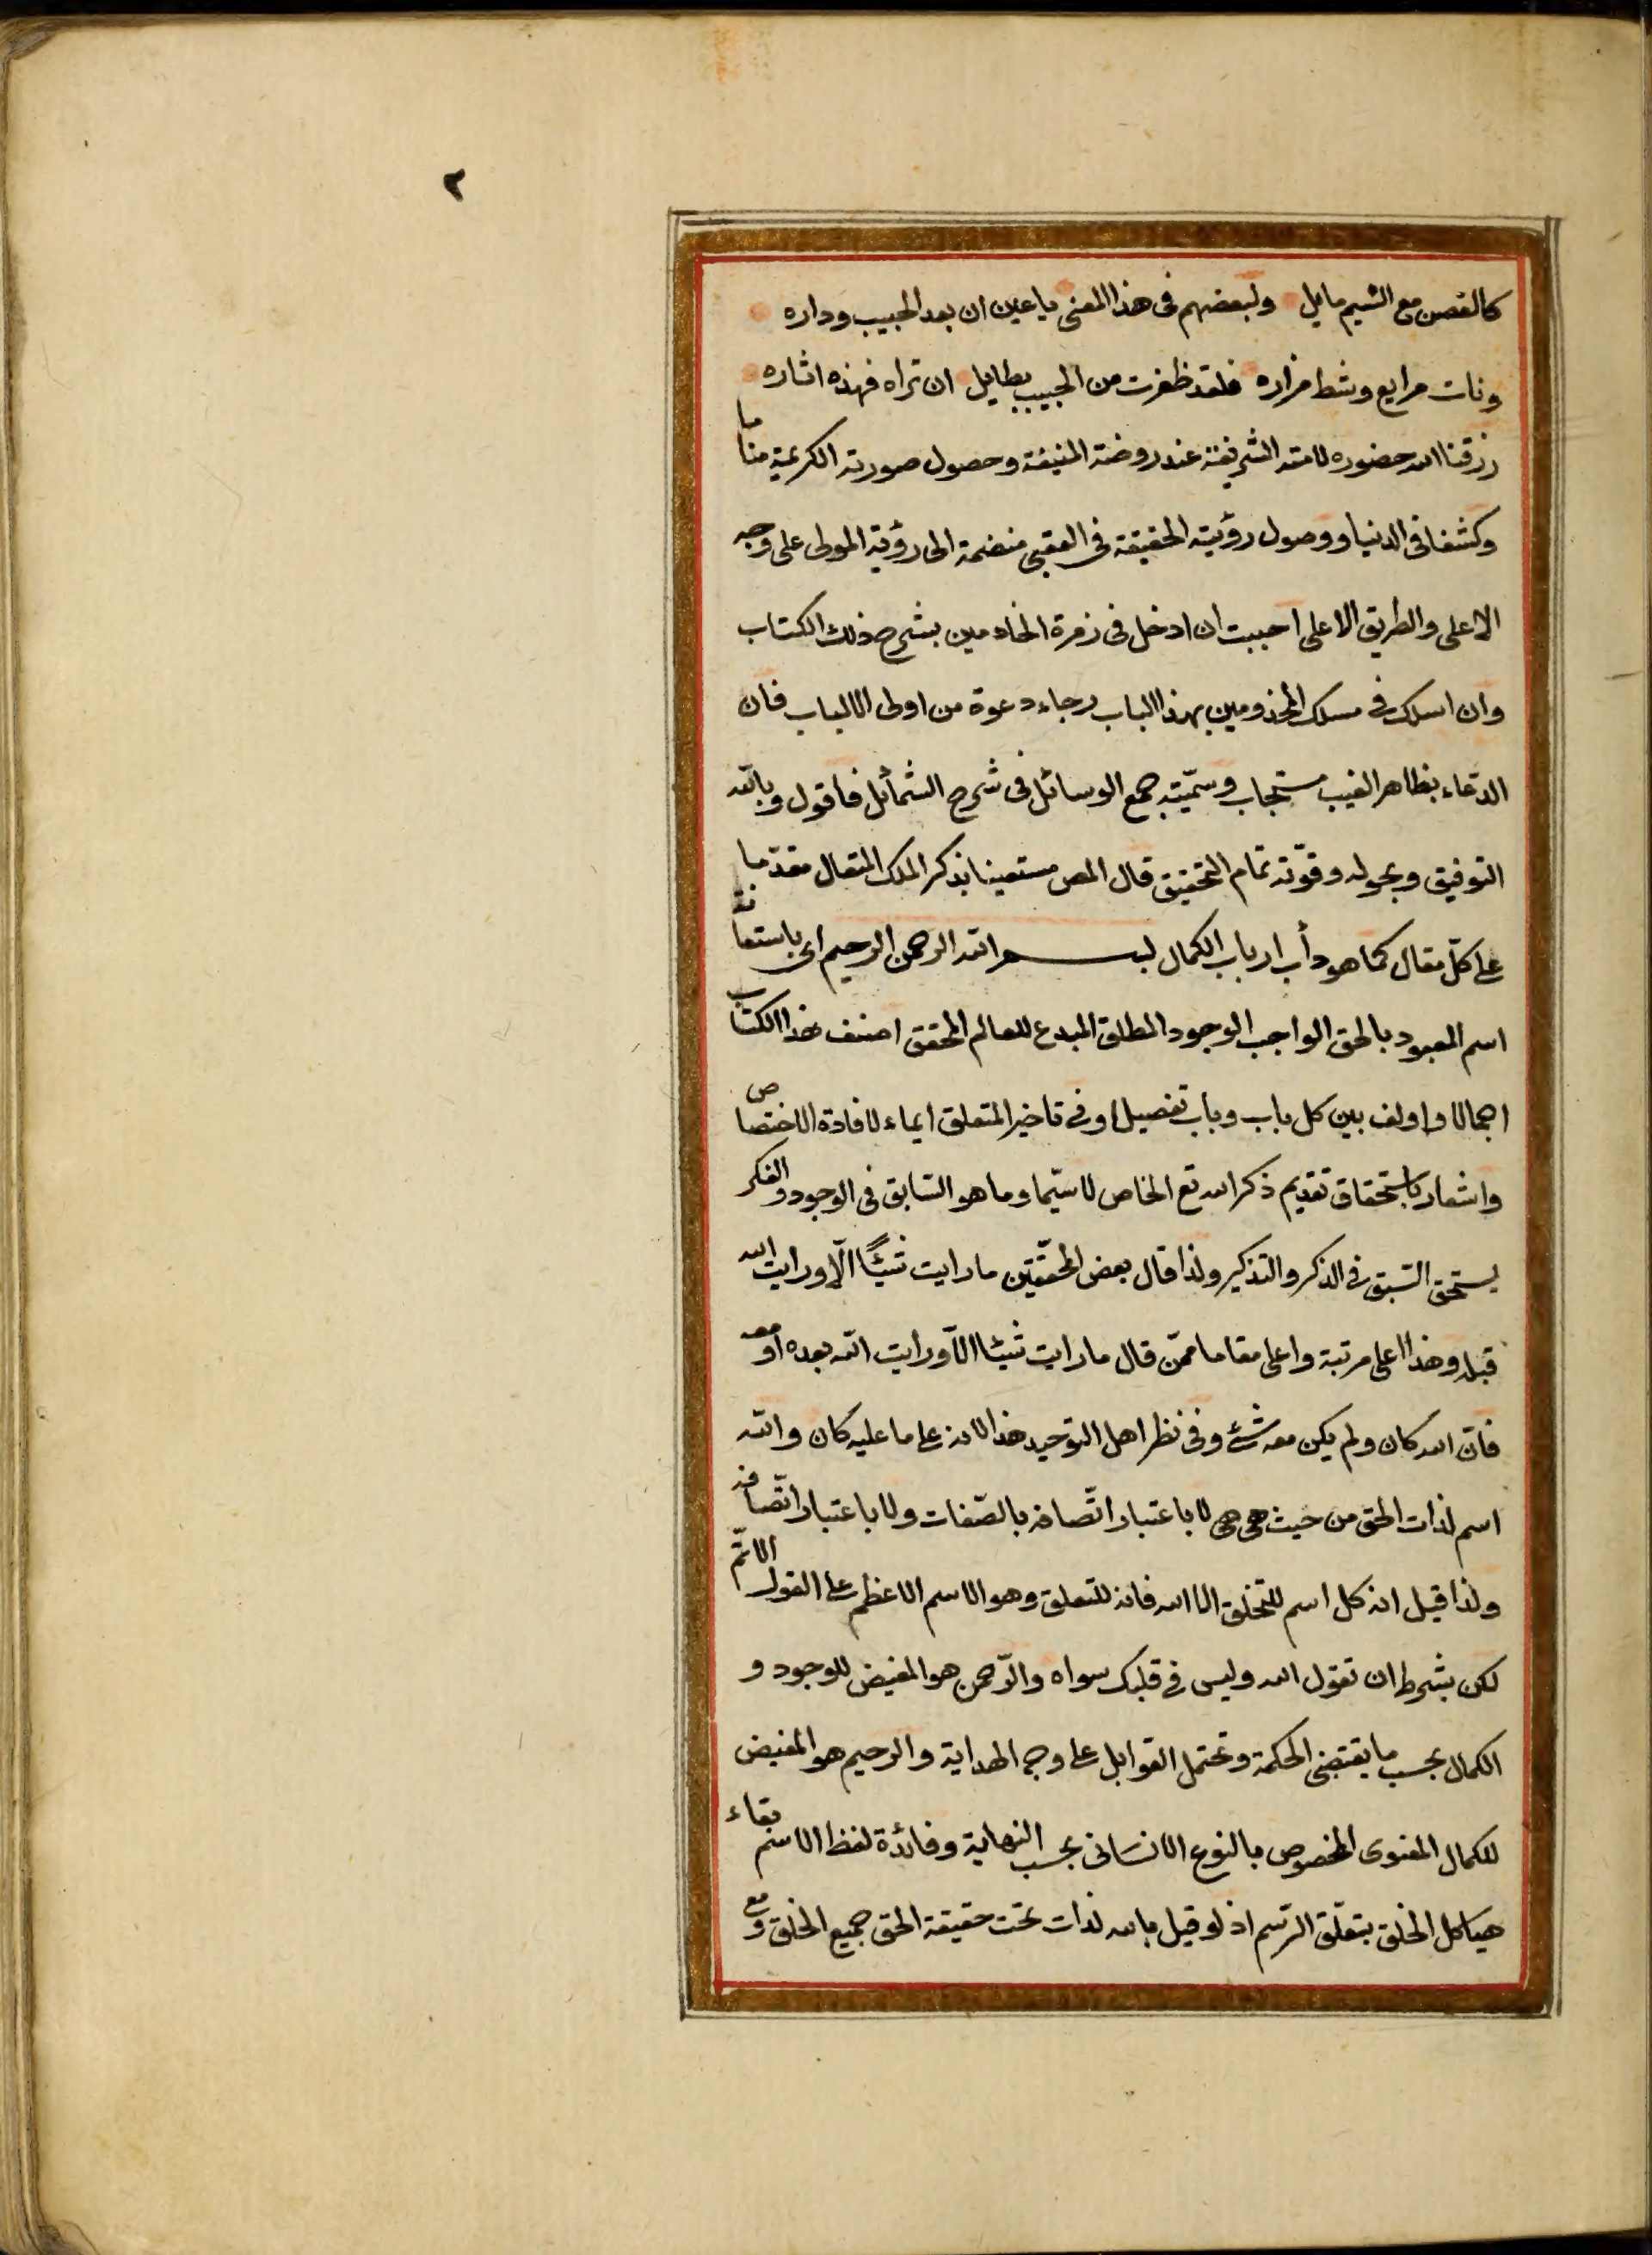 ٢
كالغصن مع النسيم مايل ولبعضهم فى هذا المعنى يا عين ان بعد الحبيب وداره
ونات مرابع وشط مزاره فلقد ظفرت من الحبيب بطايل ان تراه فهذه اثاره
رزقنا الله حضوره لامته الشريفة عند روضته المنيفة وحصول صورته الكريمة مناما
وكشفا فى الدنيا ووصول رؤيته الحقيقة فى العقبى منضمة الى رؤية المولى على وجه
الاعلى والطريق الاعلى احببت ان ادخل فى زمرة الخادمين بشرح ذلك الكتاب
وان اسلك فى مسلك المخدومين بهذا الباب رجاء دعوة من اولى الالباب فان
الدعاء بظاهر الغيب مستجاب وسمّيته جمع الوسائل فى شرح الشمائل فاقول وبالله
التوفيق وبحوله وقوّته تمام التحقيق قال المص مستعينا بذكر الملك المتعال مقدّما
على كلّ مقال كما هو دأب ارباب الكمال بسم الله الرحمن الرحيم اى باستعانة
اسم المعبود بالحق الواجب الوجود المطلق المبدع للعالم المحقق اصنف هذا الكتاب
اجمالا واولف بين كل باب وباب تفصيلا وفى تاخير المتعلق ايماء لافادة الاختصاص
واشعار باستحقاق تقديم ذكر الله تع الخاص لا سيّما وما هو السابق فى الوجود والفكر
يستحق السّبق فى الذكر والتذكير ولذا قال بعض المحقّقين ما رايت شيئًا الّا ورايت الله
قبله وهذا اعلى مرتبة واعلى مقاما ممّن قال ما رايت شيئا الّا ورايت الله بعده او معه
فانّ الله كان ولم يكن معه شئ وفى نظر اهل التوحيد هذا الان على ما عليه كان والله
اسم لذات الحق من حيث هى هى لا باعتبار اتّصافه بالصّفات ولا باعتبار اتّصافه
ولذا قيل ان كل اسم للتخلق الا الله فانه للتعلق وهو الاسم الاعظم على القول الاتمّ
لكن بشرط ان تقول الله وليس فى قلبك سواه والرّحمن هو المفيض للوجود و
الكمال بحسب ما يقتضى الحكمة وتحتمل القوابل على وجه الهداية والرحيم هو المفيض
للكمال المعنوى المخصوص بالنوع الانسانى بحسب النهاية وفائدة لفظ الاسم بقاء
هياكل الخلق بتعلّق الرّسم اذ لو قيل بالله لذات تحت حقيقة الحق جميع الخلق ومع